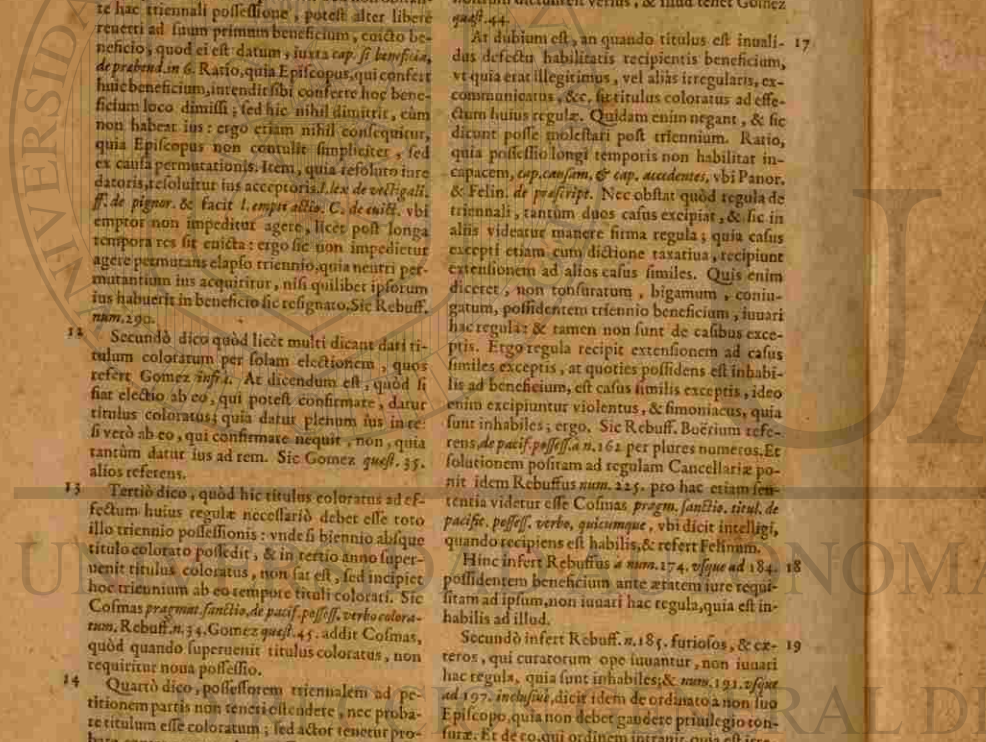 te hac triennali possessione, potest alter liberè
reuerti ad suum primum beneficium, euicto be-
neficio, quod ei est datum, iuxta cap. si beneficia,
de præbend. in 6. Ratio, quia Episcopus, qui confert
huic beneficium, intendit sibi conferre hoc bene-
ficium loco dimissi; sed hic nihil dimittit, cùm
non habeat ius: ergo etiam nihil consequitur,
quia Episcopus non contulit simpliciter, sed
ex causa permutationis. Item, quia resoluto iure
datoris, resoluitur ius acceptoris. l. lex de vectigali.
ff. de pignor. & facit l. empti actio. C. de euict. vbi
emptor non impeditur agere, licèt post longa
tempora res sit euicta: ergo sic non impedietur
agere permutans elapso triennio, quia neutri per-
mutantium ius acquiritur, nisi quilibet ipsorum
ius habuerit in beneficio sic resignato. Sic Rebuff.
num. 290.
12 Secundò dico quòd licèt multi dicant dari ti-
tulum coloratum per solam electionem, quos
refert Gomez infrà. At dicendum est, quòd si
fiat electio ab eo, qui potest confirmare, datur
titulus coloratus; quia datur plenum ius in re:
si verò ab eo, qui confirmare nequit, non, quia
tantùm datur ius ad rem. Sic Gomez quæst. 35.
alios referens.
13 Tertiò dico, quòd hic titulus coloratus ad ef-
fectum huius regulæ necessariò debet esse toto
illo triennio possessionis: vnde si biennio absque
titulo colorato possedit, & in tertio anno super-
uenit titulus coloratus, non sat est, sed incipiet
hoc triennium ab eo tempore tituli colorati. Sic
Cosmas pragmat. sanctio, de pacif. possess. verbo colora-
tum, Rebuff. n. 34. Gomez quæst. 45. addit Cosmas,
quòd quando superuenit titulus coloratus, non
requiritur noua possessio.
14 Quartò dico, possessorem triennalem ad pe-
titionem partis non teneri ostendere, nec proba-
re titulum esse coloratum; sed actor tenetur pro-
verius, & illud tenet Gomez
quæst. 44.
At dubium est, an quando titulus est inuali- 17
dus defectu habilitatis recipientis beneficium,
vt quia erat illegitimus, vel aliàs irregularis, ex-
communicatus, &c. sit titulus coloratus ad effe-
ctum huius regulæ. Quidam enim negant, & sic
dicunt posse molestari post triennium. Ratio,
quia possessio longi temporis non habilitat in-
capacem, cap. causam, & cap. accedentes, vbi Panor.
& Felin. de præscript. Nec obstat quòd regula de
triennali, tantùm duos casus excipiat, & sic in
aliis videatur manere firma regula; quia casus
excepti etiam cum dictione taxatiua, recipiunt
extensionem ad alios casus similes. Quis enim
diceret, non tonsuratum, bigamum, coniu-
gatum, possidentem triennio beneficium, iuuari
hac regula: & tamen non sunt de casibus exce-
ptis. Ergo regula recipit extensionem ad casus
similes exceptis, at quoties possidens est inhabi-
lis ad beneficium, est casus similis exceptis, ideo
enim excipiuntur violentus, & simoniacus, quia
sunt inhabiles; ergo. Sic Rebuff. Boërium refe-
rens, de pacif. possess. à n. 162 per plures numeros. Et
solutionem positam ad regulam Cancellariæ po-
nit idem Rebuffus num. 225. pro hac etiam sen-
tentia videtur esse Cosmas pragm. sanctio. titul. de
pacific. possess. verbo, quicumque, vbi dicit intelligi,
quando recipiens est habilis, & refert Felinum.
Hinc infert Rebuffus à num. 174. vsque ad 184. 18
possidentem beneficium ante ætatem iure requi-
sitam ad ipsum, non iuuari hac regula, quia est in-
habilis ad illud.
Secundò infert Rebuff. n. 185. furiosos, & cæ- 19
teros, qui curatorum ope iuuantur, non iuuari
hac regula, quia sunt inhabiles; & num. 191. vsque
ad 197. inclusiuè, dicit idem de ordinato à non suo
Episcopo, quia non debet gaudere priuilegio ton-
suræ. Et de eo, qui ordinem intrauit, quia est